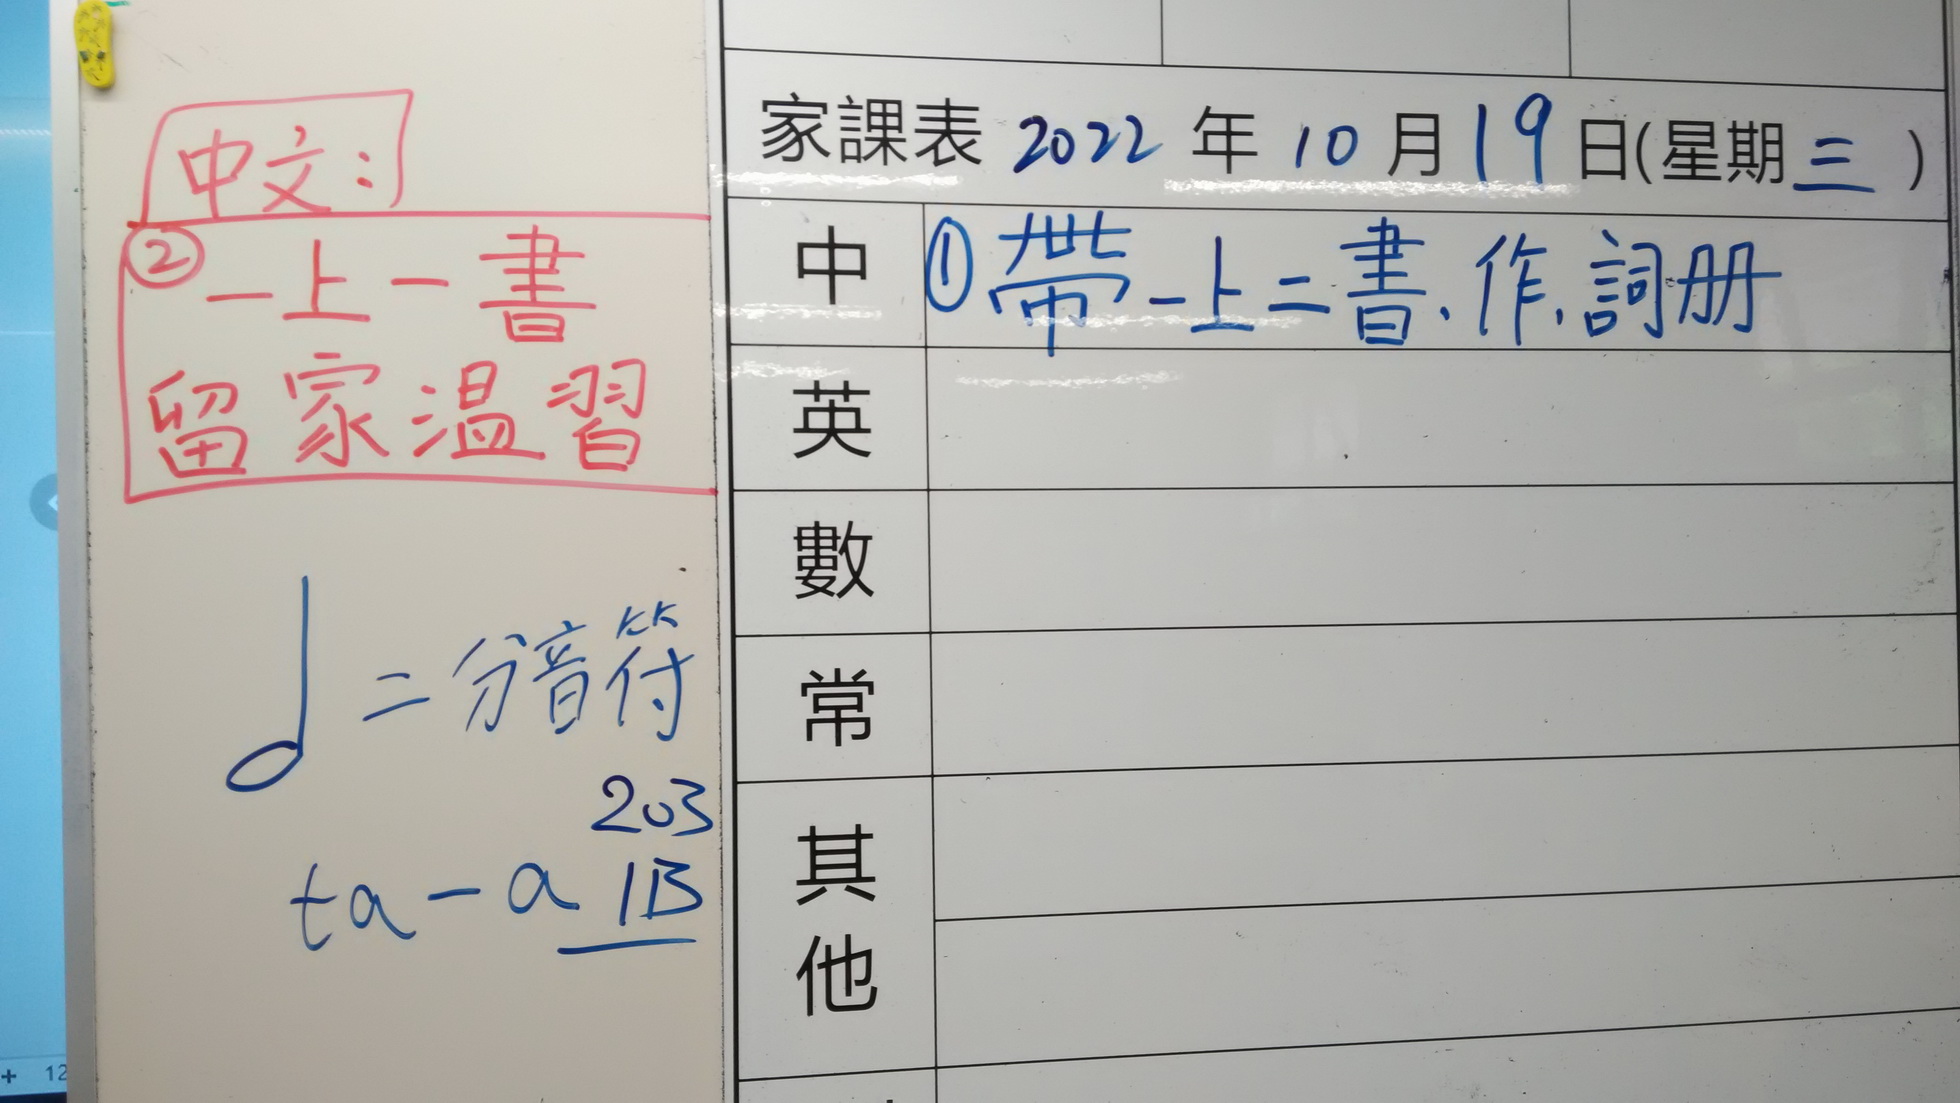 中文：
② 一上一書
留家溫習
= 分音符
203
ta - a 1B
家課表 2022 年 10 月 19 日(星期 三 )
中 ① 帶一上二書、作、詞册
英
數
常
其
他
+ 12